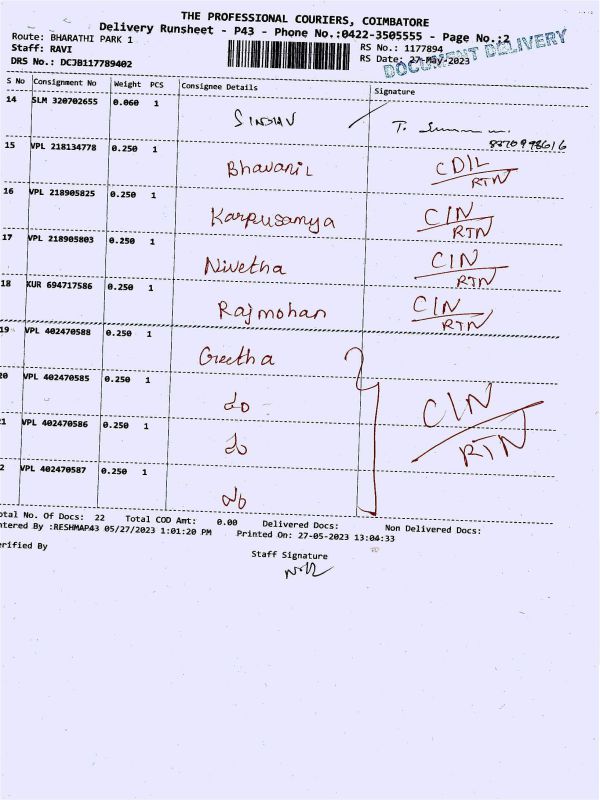 THE PROFESSIONAL COURIERS, COIMBATORE
Delivery Runsheet - P43 - Phone No.:0422-3505555 - Page No.:2
Route: BHARATHI PARK 1
RS No.: 1177894
Staff: RAVI
RS Date: 27-May-2023
DOCUMENT DELIVERY
DRS No.: DCJB117789402
S No Consignment No Weight PCS Consignee Details Signature
14 SLM 320702655 0.060 1
SINDHV
15 VPL 218134778 0.250 1
Bhavani L CDIL
RTN
16 VPL 218905825 0.250 1
Karpusamya CIN
RTN
17 VPL 218905803 0.250 1
Nivetha CIN
RTN
18 KUR 694717586 0.250 1
Rajmohan CIN
RTN
19 VPL 402470588 0.250 1
Geetha
20 VPL 402470585 0.250 1
do CIN
21 VPL 402470586 0.250 1
do RTN
2 VPL 402470587 0.250 1
do
otal No. Of Docs: 22 Total COD Amt: 0.00 Delivered Docs: Non Delivered Docs:
ntered By :RESHMAP43 05/27/2023 1:01:20 PM Printed On: 27-05-2023 13:04:33
erified By
Staff Signature